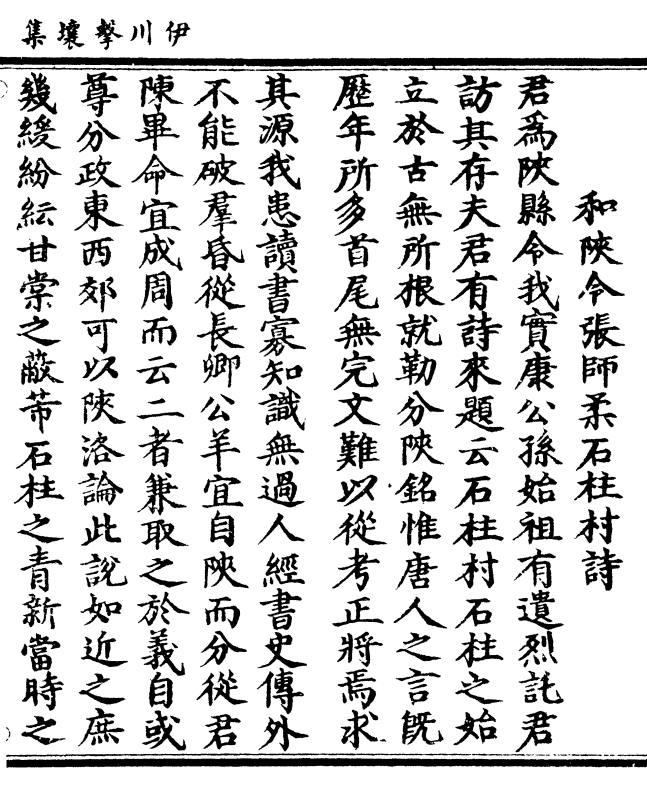 伊川擊壤集
和陝令張師柔石柱村詩
君爲陝縣令我實康公孫始祖有遺烈託君
訪其存夫君有詩來題云石柱村石柱之始
立於古無所根就勒分陝銘惟唐人之言既
歷年所多首尾無完文難以從考正將焉求
其源我患讀書寡知識無過人經書史傳外
不能破羣昏從長卿公羊宜自陝而分從君
陳畢命宜成周而云二者兼取之於義自或
尊分政東西郊可以陝洛論此說如近之庶
幾緩紛紜甘棠之蔽芾石柱之青新當時之